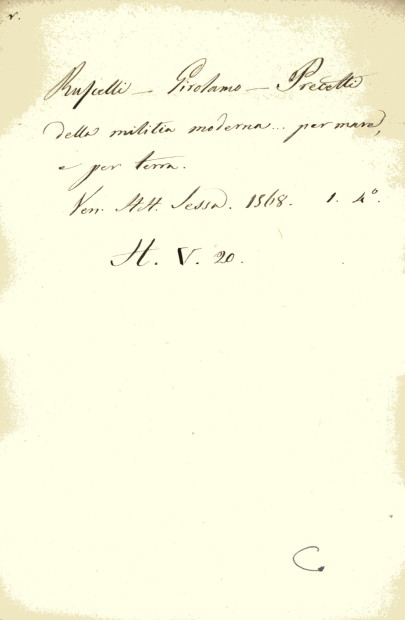 r.
Ruscelli — Girolamo — Precetti
della militia moderna... per mare,
e per terra.
Ven. HH. Sessa. 1568. 1. 4°.
H. V. 20.
C.